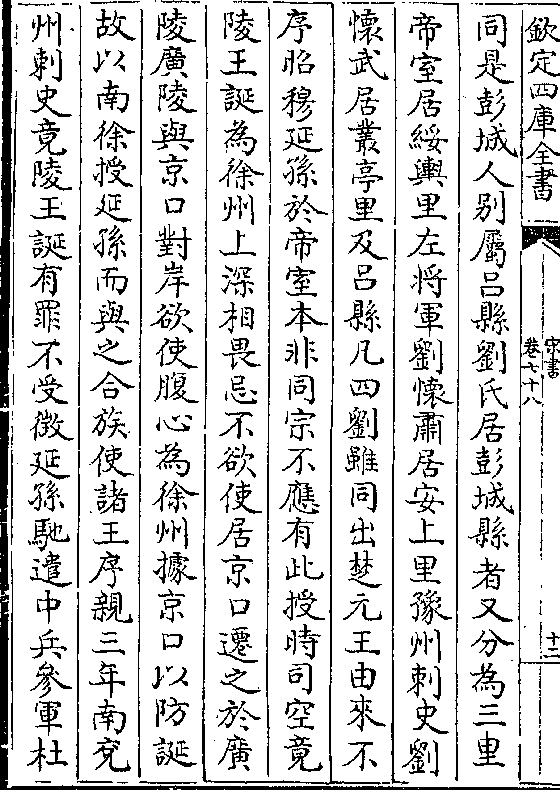 欽定四庫全書
宋書
卷七十八
十二
同是彭城人别屬吕縣劉氏居彭城縣者又分為三里
帝室居綏輿里左将軍劉懷肅居安上里豫州刺史劉
懷武居叢亭里及吕縣凡四劉雖同出楚元王由來不
序昭穆延孫於帝室本非同宗不應有此授時司空竟
陵王誕為徐州上深相畏忌不欲使居京口遷之於廣
陵廣陵與京口對岸欲使腹心為徐州據京口以防誕
故以南徐授延孫而與之合族使諸王序親三年南兗
州刺史竟陵王誕有罪不受徴延孫馳遣中兵參軍杜